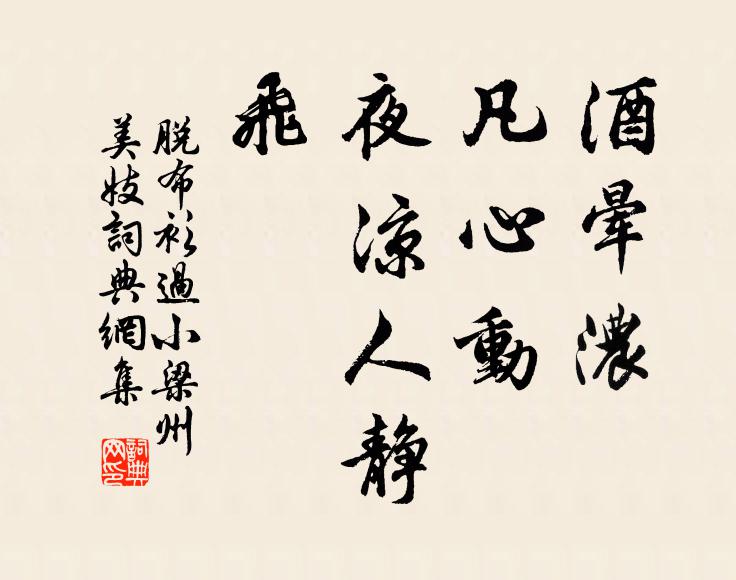 酒暈濃
凡心動
夜涼人靜
飛
脫布衫過小梁州
美妓詞典網集
詞典網印